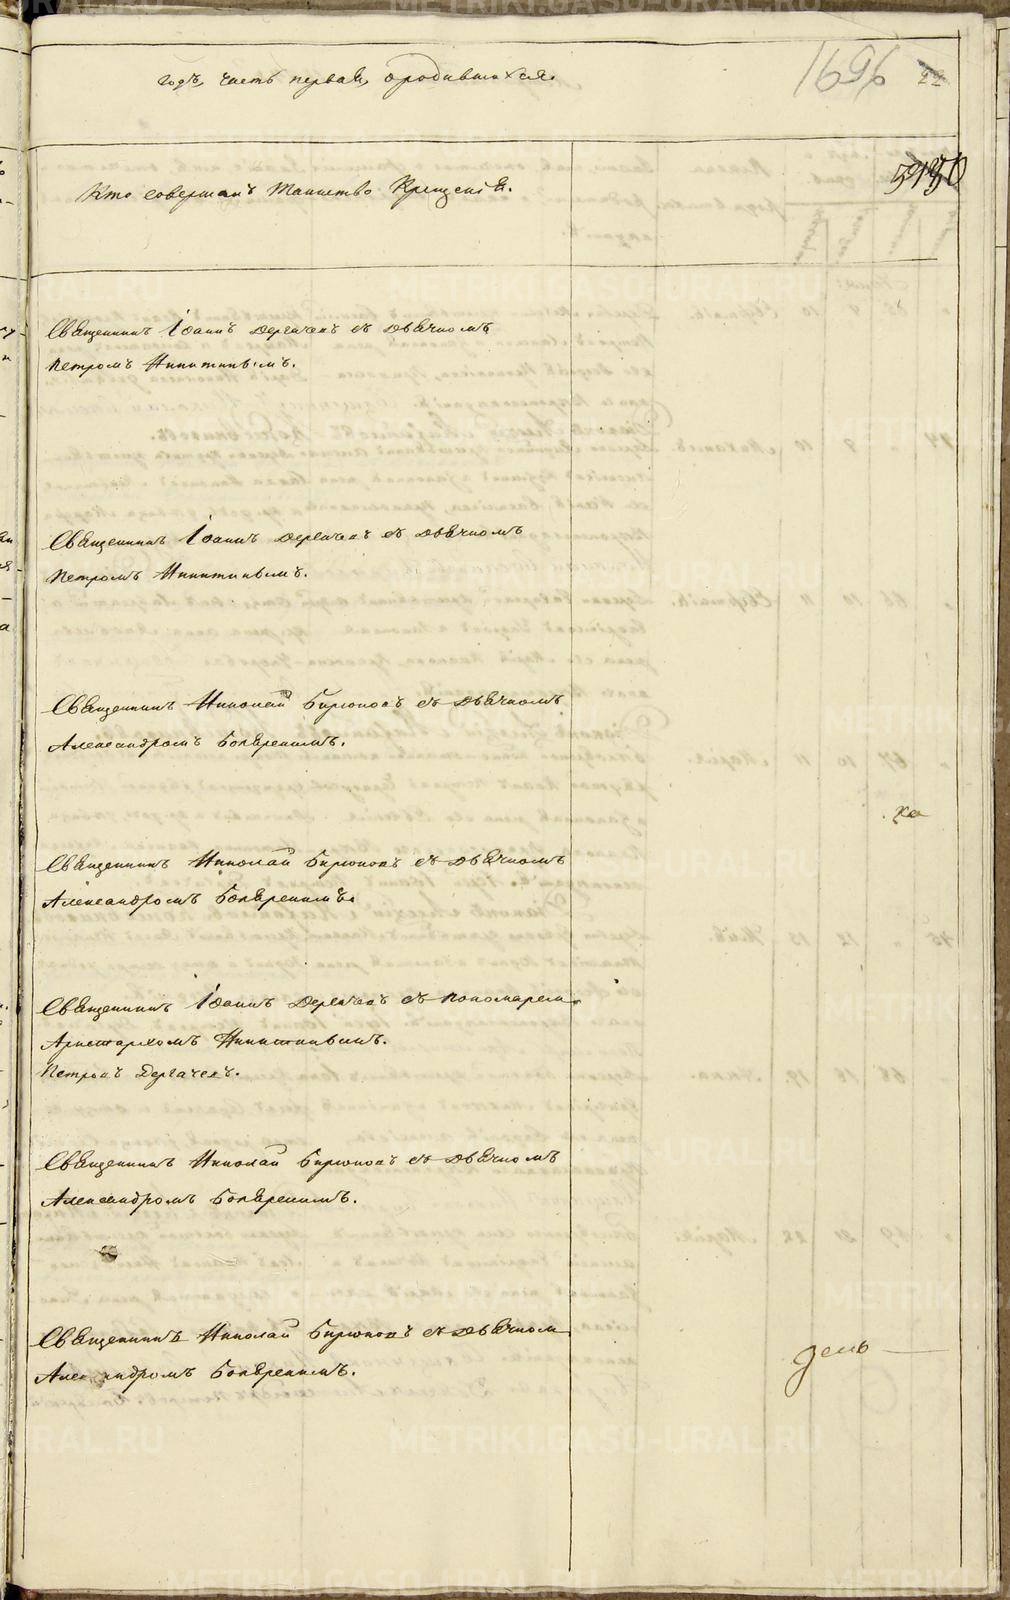 годъ, часть первая, о родившихся.
1696
22
Кто совершалъ Таинство Крещенія.
Священникъ Іоаннъ Дергачевъ съ Дьячкомъ
Петромъ Никитинымъ.
Священникъ Іоаннъ Дергачевъ съ Дьячкомъ
Петромъ Никитинымъ.
Священникъ Николай Бирюковъ съ Дьячкомъ
Александромъ Бояренимъ.
ка
Священникъ Николай Бирюковъ съ Дьячкомъ
Александромъ Бояренимъ.
Священникъ Іоаннъ Дергачевъ съ пономарем
Аристархомъ Никитинымъ.
Петромъ Дергачевъ.
Священникъ Николай Бирюковъ съ Дьячкомъ
Александромъ Бояренимъ.
Священникъ Николай Бирюковъ съ Дьячком
Александромъ Бояренимъ.
день
METRIKI.GASO-URAL.RU